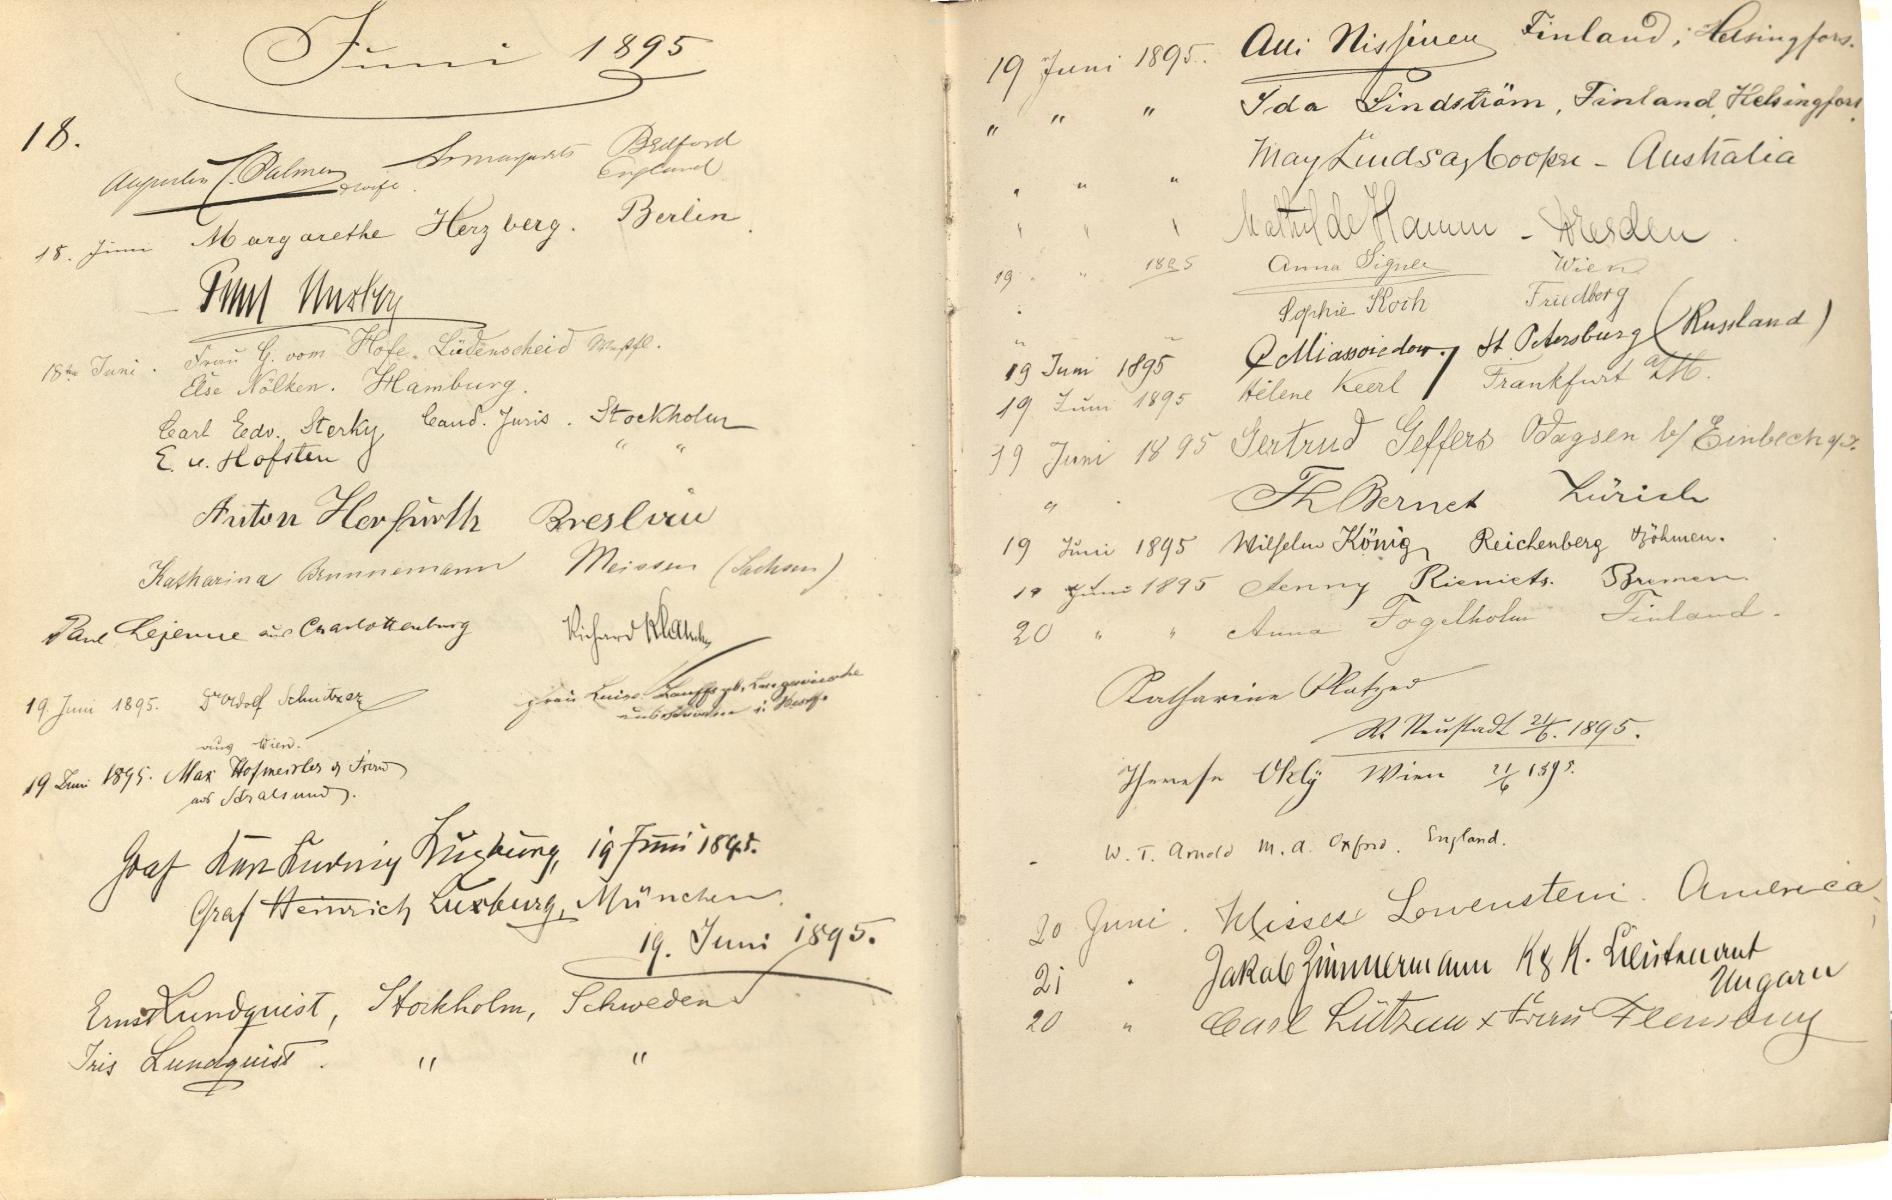 Juni 1895
18.
Bedford
& wife. England
18. Juni Margarethe Herzberg. Berlin.
Paul
18te Juni. Frau G. vom Hofe. Lüdenscheid Westfl.
Else Nölken. Hamburg.
Carl Edv. Sterky Cand. Juris. Stockholm
E. v. Hofsten " "
Anton Herfurth Breslau
Katharina Brunnemann Meissen (Sachsen)
Paul Lejeune aus Charlottenburg Richard
19. Juni 1895. Dr Adolf Schnitzer Frau Luise
aus Wien.
19 Juni 1895. Max Hofmeister & Frau
aus Stralsund.
Graf Karl Ludwig Luxburg, 19 Juni 1895.
Graf Heinrich Luxburg, München.
19. Juni 1895.
Ernst Lundquist, Stockholm, Schweden
Iris Lundquist. " "
19 Juni 1895. Alli Nissinen Finland; Helsingfors.
" " " Ida Lindström, Finland, Helsingfors.
" " " May Lindsay Cooper - Australia
" " " Mathilde Hamm - Dresden.
19. " 1895 Anna Wien
" Sophie Koch Friedberg
19 Juni 1895 Miassoiedow. St. Petersburg (Russland)
19. Juni 1895 Hélène Keerl Frankfurt a/M.
19 Juni 1895 Gertrud Geffers Odagsen b/ Einbeck
" Th Bernet Zürich
19 Juni 1895 Wilhelm König Reichenberg Böhmen.
19 Juni 1895 Aenny Rieniets. Bremen.
20 " " Anna Fogelholm Finland.
Katharine Platzer
W. Neustadt 21/6. 1895.
Therese Wien 21/6 1895.
W. T. Arnold M. A. Oxford. England.
20 Juni. Misses Lowenstein. America.
21 " Jakob Zimmermann K & K. Lieutenant
Ungarn
20 " Carl Lützau & Frau Flensburg